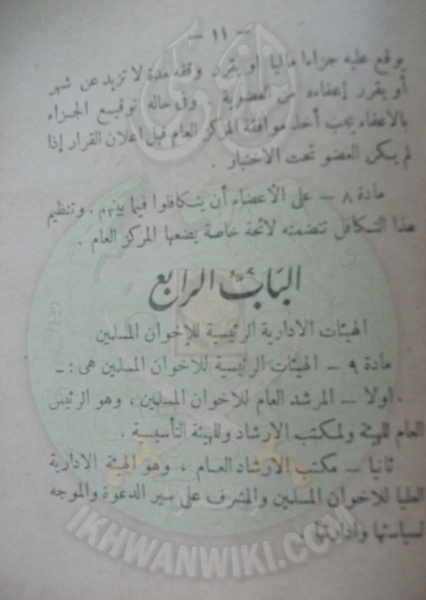 — ١١ —
يوقع عليه جزاءا ماليا أو يقرر وقفه مدة لا تزيد عن شهر
أو يقرر إعفاءه من العضوية . وفى حالة توقيع الجزاء
بالاعفاء يجب أخذ موافقة المركز العام قبل اعلان القرار إذا
لم يكن العضو تحت الاختبار .
مادة ٨ — على الأعضاء أن يتكافلوا فيما بينهم . وتنظيم
هذا التكافل تتضمنه لائحة خاصة يضعها المركز العام .
الباب الرابع
الهيئات الادارية الرئيسية للإخوان المسلمين
مادة ٩ — الهيئات الرئيسية للاخوان المسلمين هى : ـ
اولا — المرشد العام للاخوان المسلمين ، وهو الرئيس
العام للهيئة ولمكتب الارشاد وللهيئة التأسيسية .
ثانيا — مكتب الارشاد العام ، وهو الهيئة الادارية
العليا للاخوان المسلمين والمشرف على سير الدعوة والموجه
لسياستها وادارتها .
IKHWANWIKI.COM